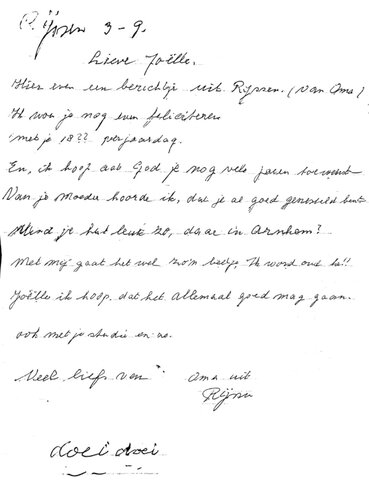 Rijssen 3-9.
Lieve Joëlle.
Hier even een berichtje uit Rijssen. (van Oma)
Ik wou je nog even feliciteren
met je 18?? verjaardag.
En, ik hoop dat God je nog vele jaren toewenst
Van je Moeder hoorde ik, dat je al goed gewisseld bent
Vind je het leuk zo, daar in Arnhem?
Met mij gaat het wel zo'n beetje, Ik word oud hè!!
Joëlle ik hoop, dat het Allemaal goed mag gaan.
ook met je studie en zo.
Veel liefs van Oma uit
Rijssen
doei doei